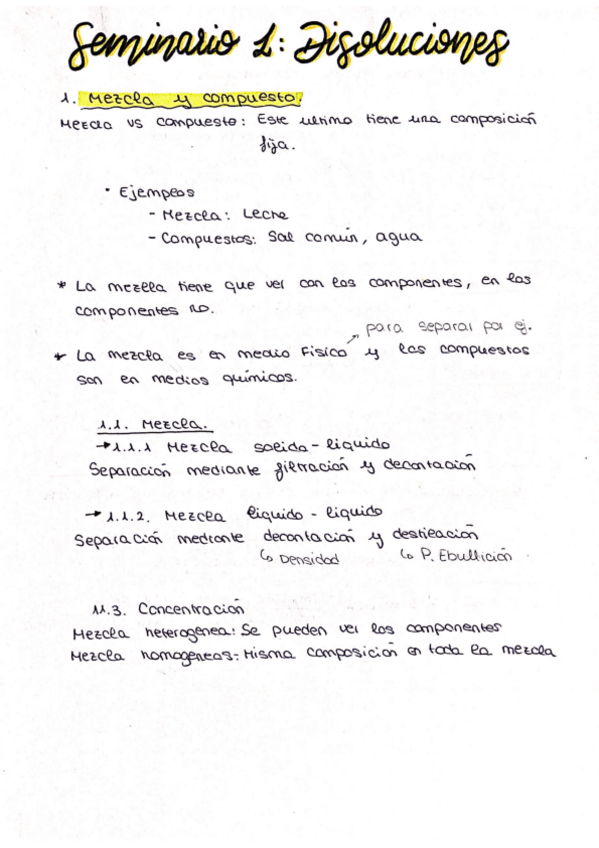 Seminario 1: Disoluciones
1. Mezcla y compuesto:
Mezcla vs compuesto: Este ultimo tiene una composición
fija.
· Ejemplos
- Mezcla: Leche
- Compuestos: Sal común, agua
* La mezcla tiene que ver con los componentes, en los
componentes no.
para separar por ej.
* La mezcla es en medio Físico y los compuestos
son en medios químicos.
1.1. Mezcla.
→1.1.1 Mezcla solido - liquido
Separación mediante filtración y decantación
→ 1.1.2. Mezcla liquido - liquido
Separación mediante decantación y destilación
↳ Densidad ↳ P. Ebullición
11.3. Concentración
Mezcla heterogenea: Se pueden ver los componentes
Mezcla homogeneas: Misma composición en toda la mezcla